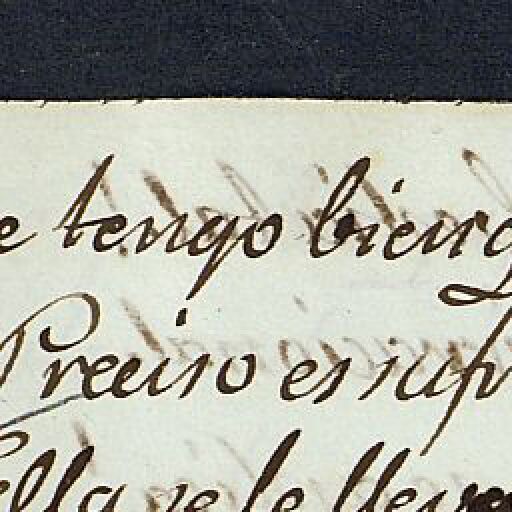 e tengo bien q
Preciso es sufr
ella se le lleve